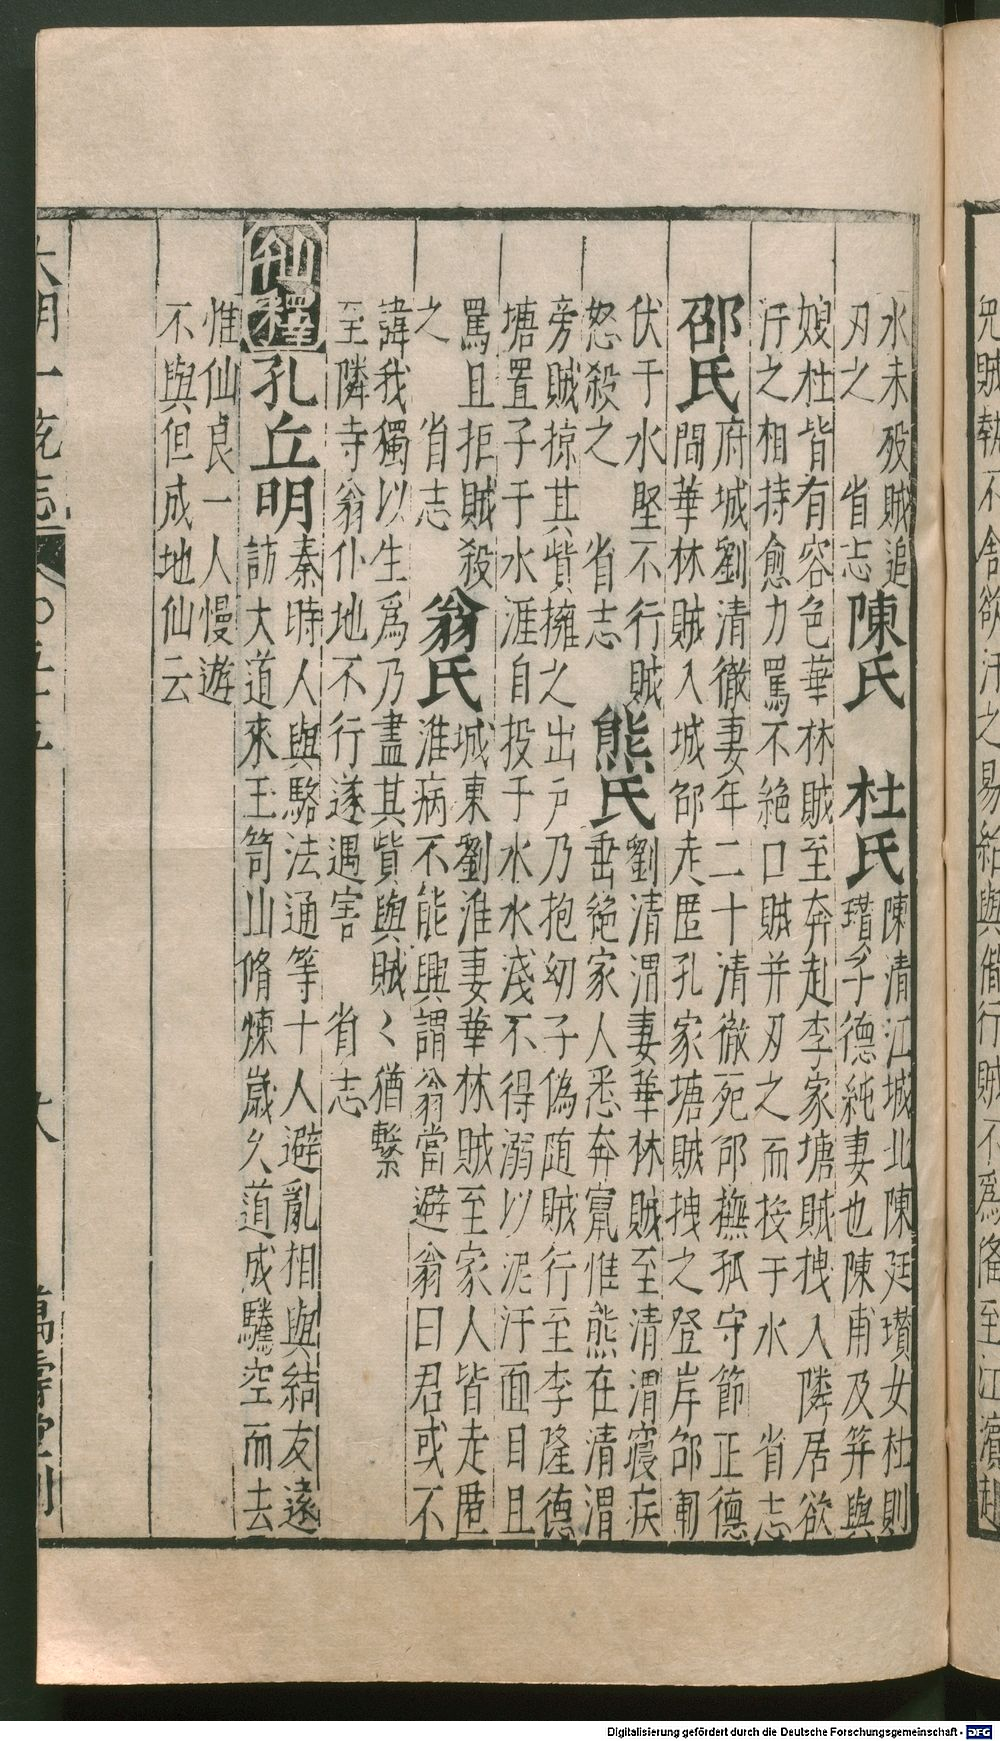 水未歿賊追
刃之　省志
陳氏　杜氏
陳清江城北陳廷瓚女杜則
瓚子德純妻也陳甫及笄與
娘杜皆有容色華林賊至奔赴李家塘賊拽入隣居欲
汙之相持愈力罵不絶口賊并刃之而投于水　省志
邵氏
府城劉清徹妻年二十清徹死邵撫孤守節正德
間華林賊入城邵走匿孔家塘賊拽之登岸邵
伏于水堅不行賊
怒殺之　省志
熊氏
劉清渭妻華林賊至清渭寢疾
垂絶家人悉奔竄惟熊在清渭
旁賊掠其貲擁之出戶乃抱幼子偽随賊行至李隆德
塘置子于水涯自投于水水淺不得溺以泥汙面目且
罵且拒賊殺
之　省志
翁氏
城東劉淮妻華林賊至家人皆走匿
淮病不能興謂翁當避翁曰君或不
諱我獨以生爲乃盡其貲與賊〻猶繫
至隣寺翁仆地不行遂遇害　省志
仙釋
孔丘明
秦時人與駱法通等十人避亂相與結友遠
訪大道來玉笥山脩煉歲久道成騰空而去
惟仙良一人慢遊
不與但成地仙云
大明一統志
萬壽堂刊
Digitalisierung gefördert durch die Deutsche Forschungsgemeinschaft - DFG